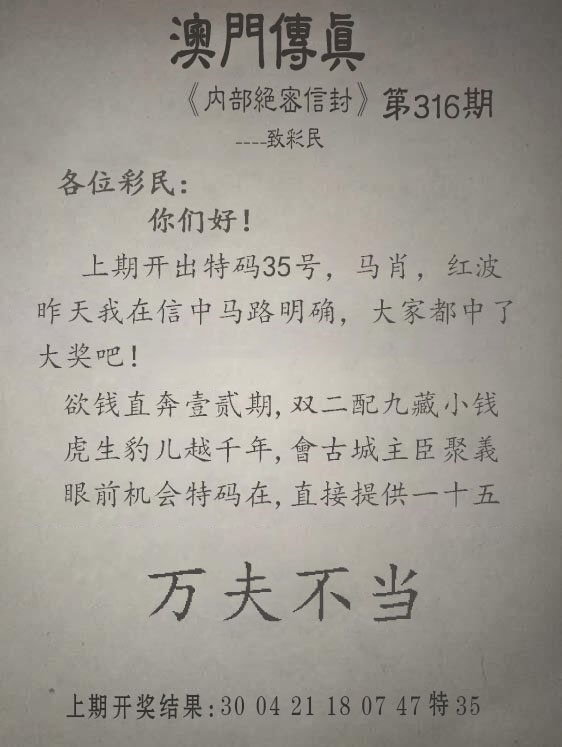 澳門傳真
《内部絕密信封》第316期
----致彩民
各位彩民：
你们好！
上期开出特码35号，马肖，红波
昨天我在信中马路明确，大家都中了
大奖吧！
欲钱直奔壹贰期,双二配九藏小钱
虎生豹儿越千年,會古城主臣聚義
眼前机会特码在,直接提供一十五
万夫不当
上期开奖结果:30 04 21 18 07 47 特 35